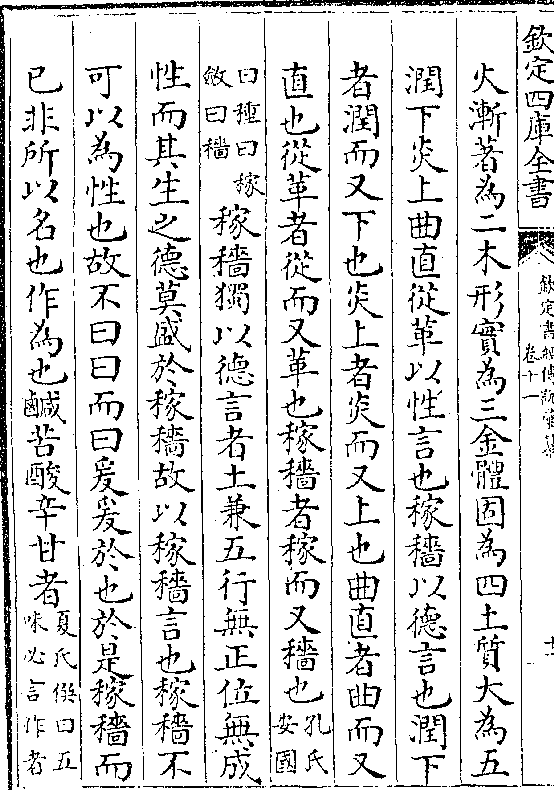 欽定四庫全書
欽定書經傳說彙纂
卷十一
火漸著為二木形實為三金體固為四土質大為五
潤下炎上曲直從革以性言也稼穡以德言也潤下
者潤而又下也炎上者炎而又上也曲直者曲而又
直也從革者從而又革也稼穡者稼而又穡也孔氏安國
曰種曰稼斂曰穡稼穡獨以德言者土兼五行無正位無成
性而其生之德莫盛於稼穡故以稼穡言也稼穡不
可以為性也故不曰曰而曰爰爰於也於是稼穡而
已非所以名也作為也鹹苦酸辛甘者夏氏僎曰五味必言作者